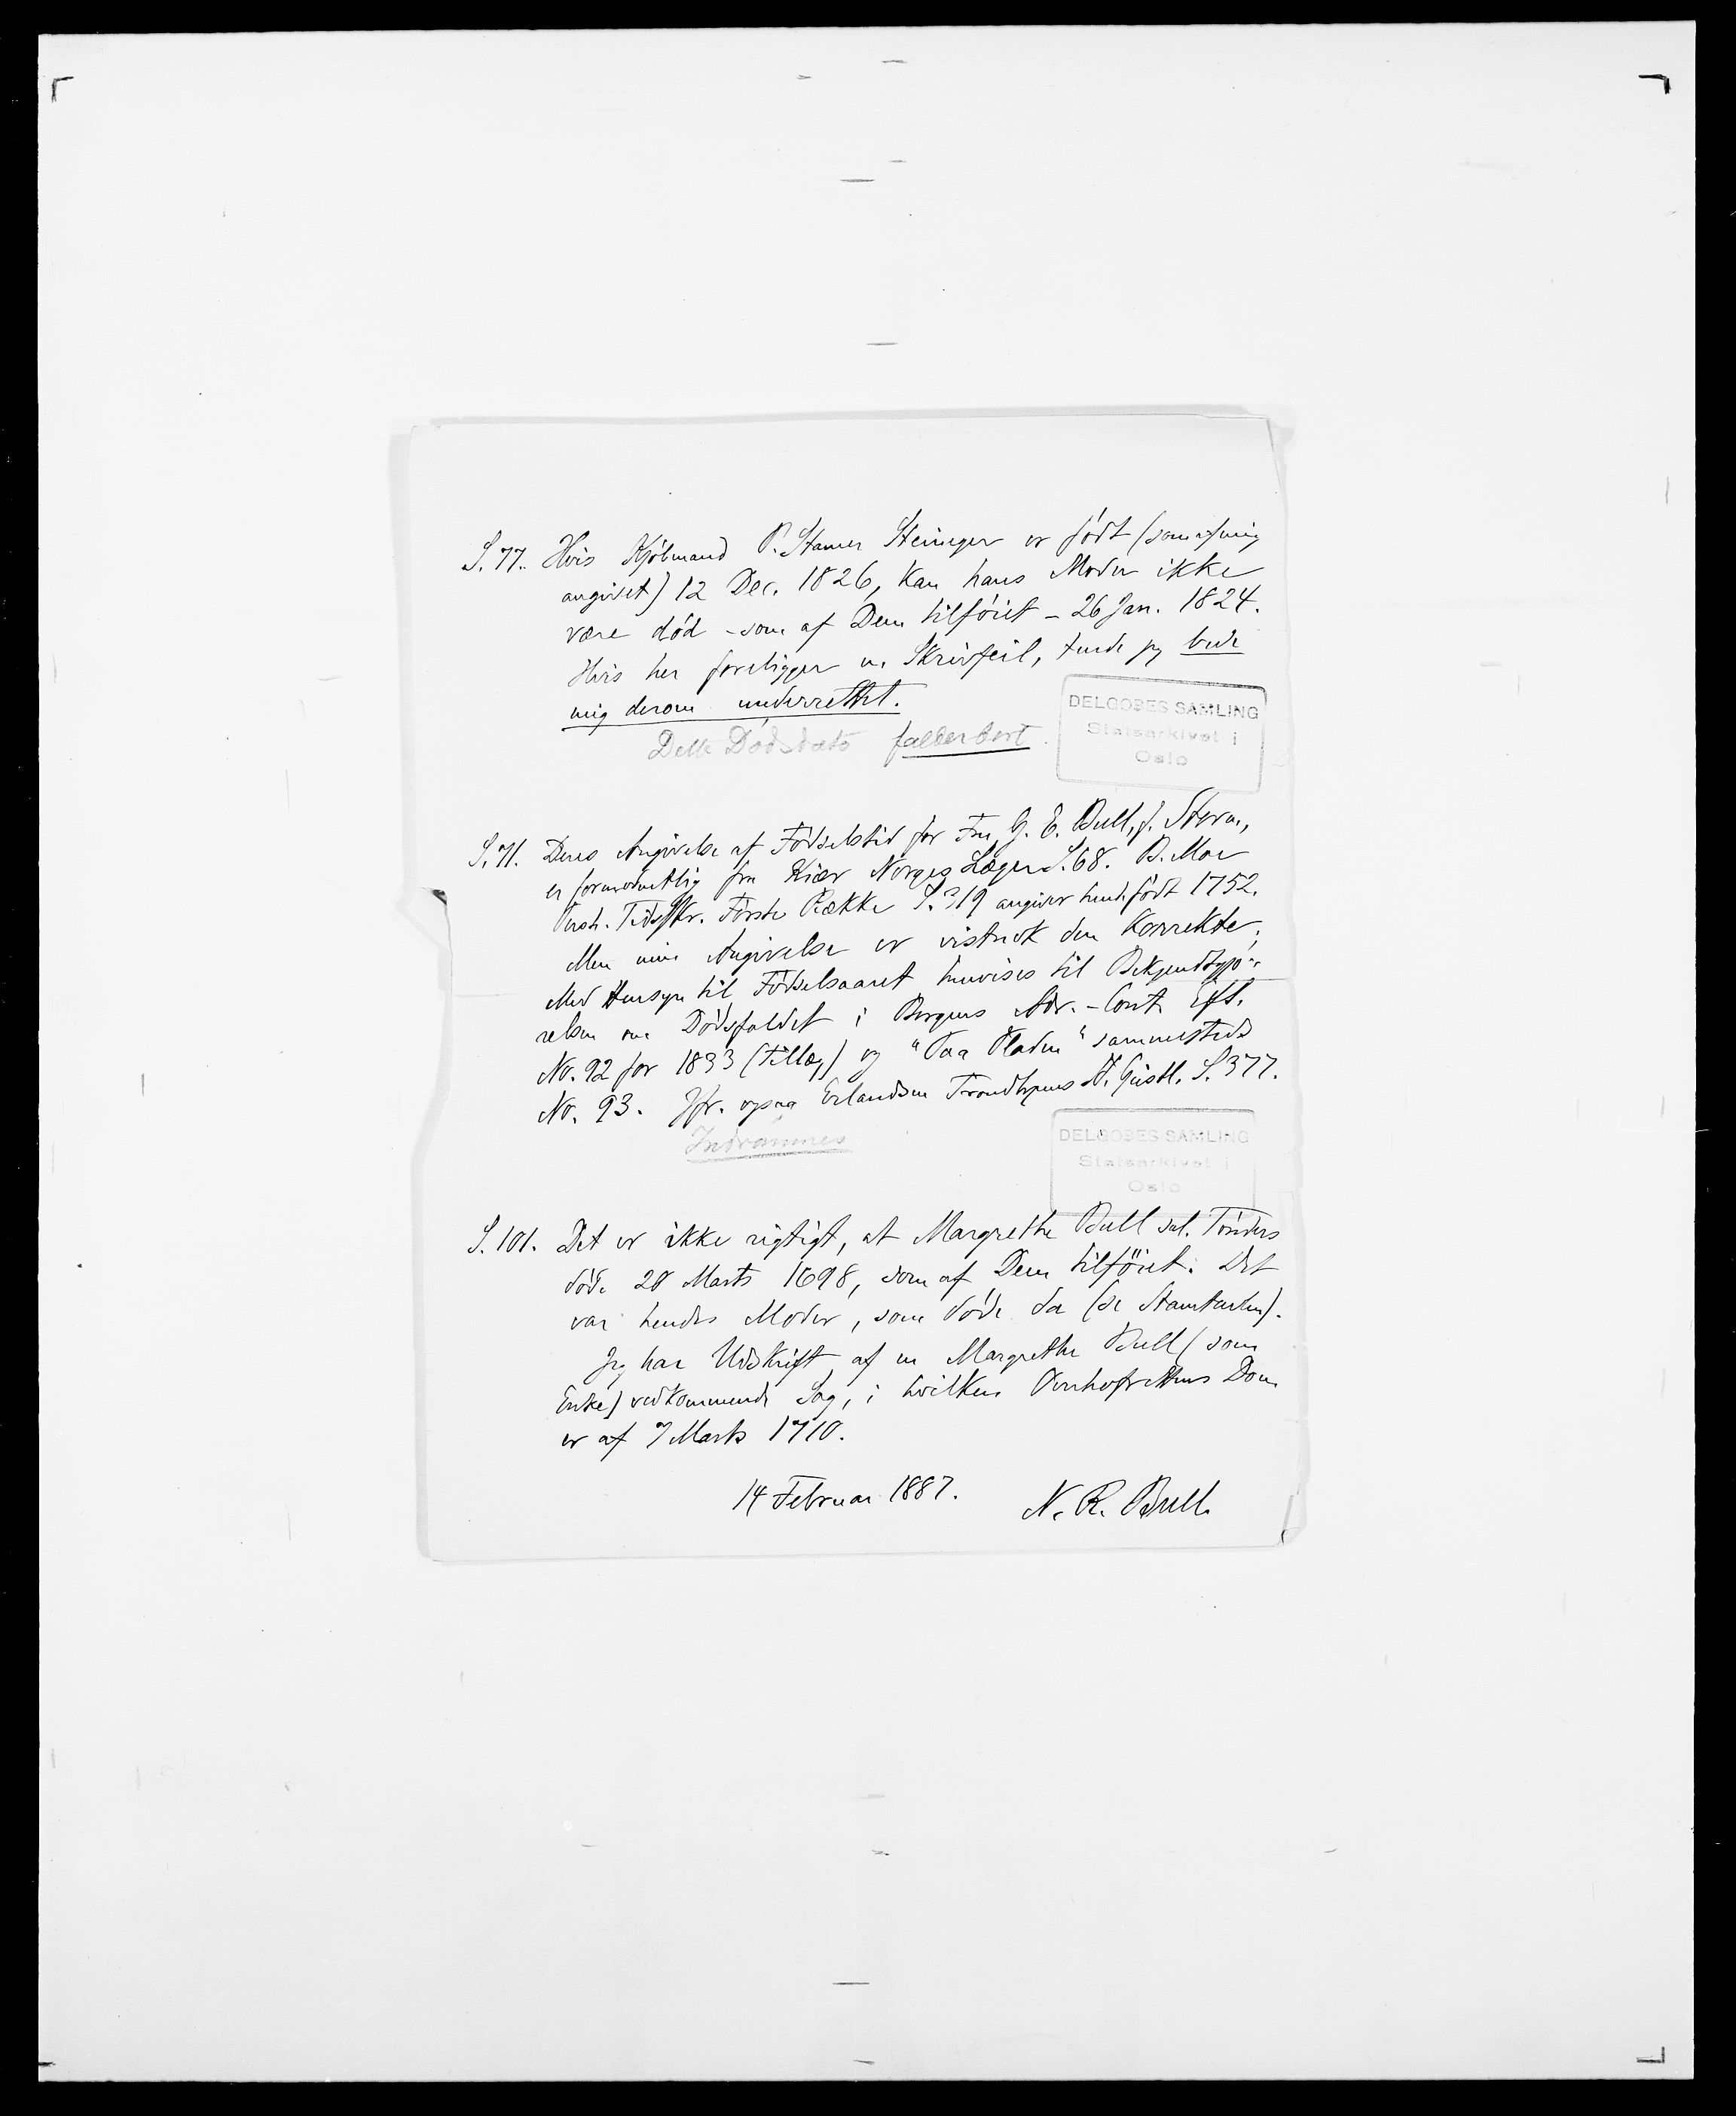 S. 77. Hvis Kjøbmand P. Stamer Steineger er født (som af mig
angivet) 12 Dec. 1826, kan hans Moder ikke
være død - som af Dem tilføiet - 26 Jan. 1824.
Hvis her foreligger en Skrivfeil, turde jeg bede
mig derom underrettet.
Dette Dødsdato falder bort.
DELGOBES SAMLING
Statsarkivet i
Oslo
S. 71. Deres Angivelse af Fødselstid for Fru G. E. Bull, f.
er formodentlig fra Kiær Norges Læger S. 68. B. Moe
Tidsskr. Første Række S. 319 angiver hende født 1752.
Men min Angivelse er vistnok den korrekte;
Med Hensyn til Fødselsaaret henvises til Bekjendtgjø-
relsen om Dødsfaldet i Bergens Adr.-Cont. Eft.
No. 92 for 1833 (Tillæg) og "Paa Pladen" sammesteds
No. 93. Jfr. ogsaa Erlandsen Trondhjems St. Geistl. S. 377.
Indrømmes
DELGOBES SAMLING
Statsarkivet i
Oslo
S. 101. Det er ikke rigtigt, at Margrethe Bull sal. Tønders
døde 20 Marts 1698, som af Dem tilføiet. Det
var hendes Moder, som døde da (se Stamtavlen).
Jeg har Udskrift af en Margrethe Bull (som
Enke) vedkommende Sag, i hvilken Overhofrettens Dom
er af 7 Marts 1710.
14 Februar 1887. N. R. Bull.